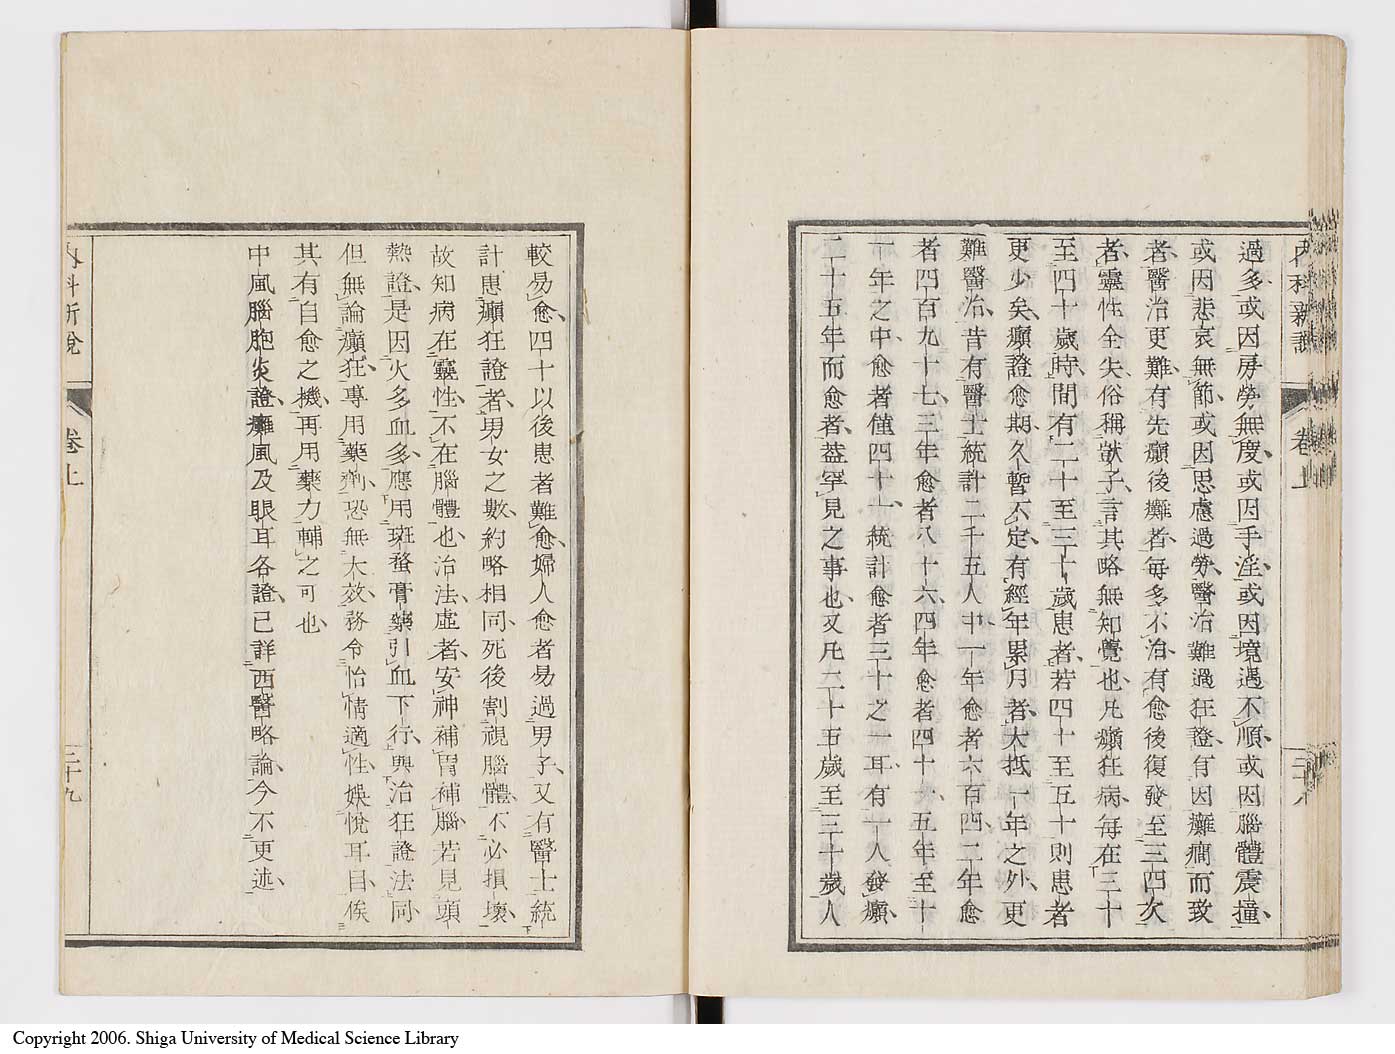 內科新說 卷上
過多或因房勞無度或因手淫或因境遇不順或因腦體震撞
或因悲哀無節或因思慮過勞醫治難過狂證有因癱癇而致
者醫治更難有先癲後癱者每多不治有愈後復發至三四次
者靈性全失俗稱獃子言其略無知覺也凡癲狂病每在三十
至四十歲時間有二十至三十歲患者若四十至五十則患者
更少矣癲證愈期久暫不定有經年累月者大抵一年之外更
難醫治昔有醫士統計二千五人中一年愈者六百四二年愈
者四百九十七三年愈者八十六四年愈者四十一五年至十
一年之中愈者僅四十一統計愈者三十之一耳有一人發癲
二十五年而愈者葢罕見之事也又凡二十五歲至三十歲人
較易愈四十以後患者難愈婦人愈者易過男子又有醫士統
計患癲狂證者男女之數約略相同死後割視腦體不必損壞
故知病在靈性不在腦體也治法虛者安神補胃補腦若見頭
熱證是因火多血多應用斑蝥膏藥引血下行與治狂證法同
但無論癲狂專用藥劑恐無大效務令怡情適性娛悅耳目俟
其有自愈之機再用藥力輔之可也
中風腦胞炎證癱風及眼耳各證已詳西醫略論今不更述
內科新說 卷上 二十九
Copyright 2006. Shiga University of Medical Science Library